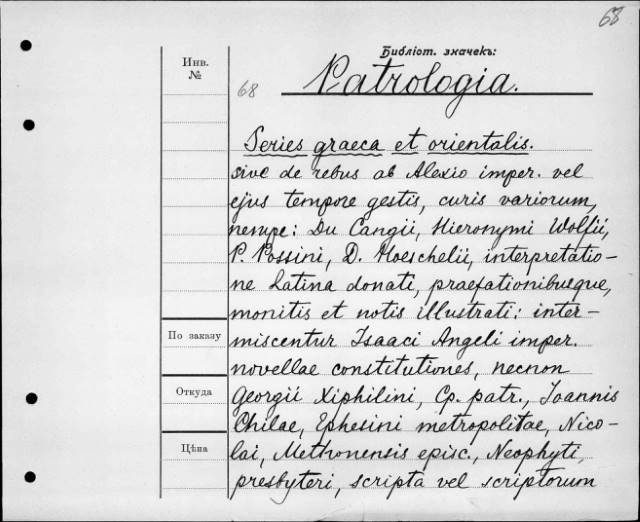 68
Библіот. значекъ:
Инв.
№
68
Patrologia.
Series graeca et orientalis.
sive de rebus ab Alexio imper. vel
ejus tempore gestis, curis variorum,
nempe: Du Cangii, Hieronymi Wolfii,
P. Possini, D. Hoeschelii, interpretatio-
ne Latina donati, praefationibusque,
monitis et notis illustrati: inter-
По заказу
miscentur Isaaci Angeli imper.
novellae constitutiones, necnon
Откуда
Georgii Xiphilini, Cp. patr., Ioannis
Chilae, Ephesini metropolitae, Nico-
Цѣна
lai, Methonensis episc., Neophyti,
presbyteri, scripta vel scriptorum